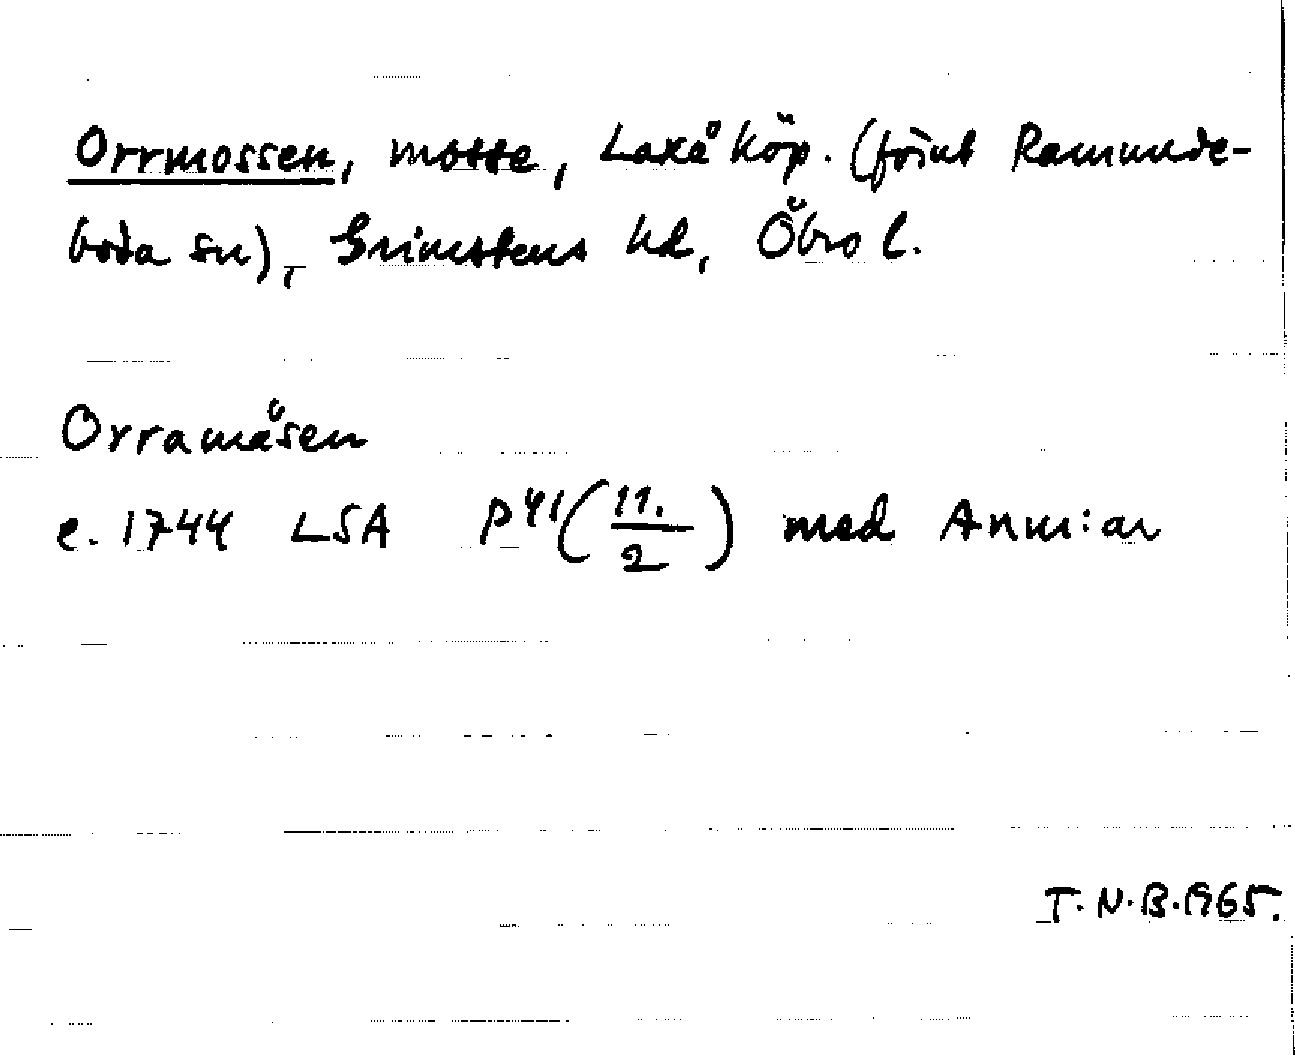 Orrmossen, mosse, Laxå köp. (förut Ramunde-
boda sn), Grimstens hd, Öbro l.
Orramåsen
e. 1744 LSA P41 (11./2) med Anm:ar
T.N.B.1965.